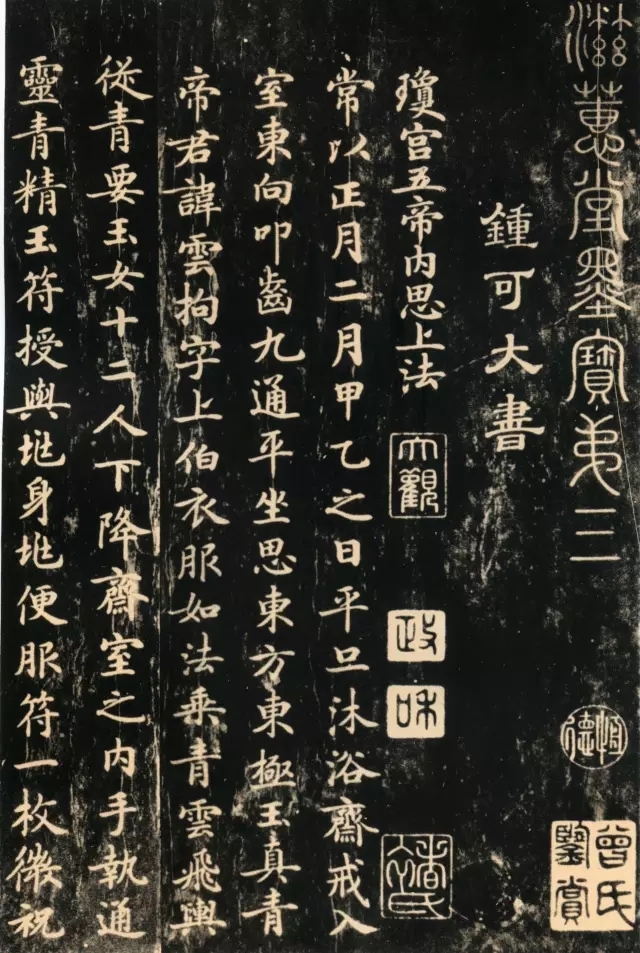 滋蕙堂墨寶弟三
恒德
曾氏鑒賞
鍾可大書
瓊宮五帝内思上法
大觀
政
和
常以正月二月甲乙之日平旦沐浴齋戒入
室東向叩齒九通平坐思東方東極玉真青
帝君諱雲拘字上伯衣服如法乘青雲飛輿
從青要玉女十二人下降齋室之内手執通
靈青精玉符授與兆身兆便服符一枚微祝